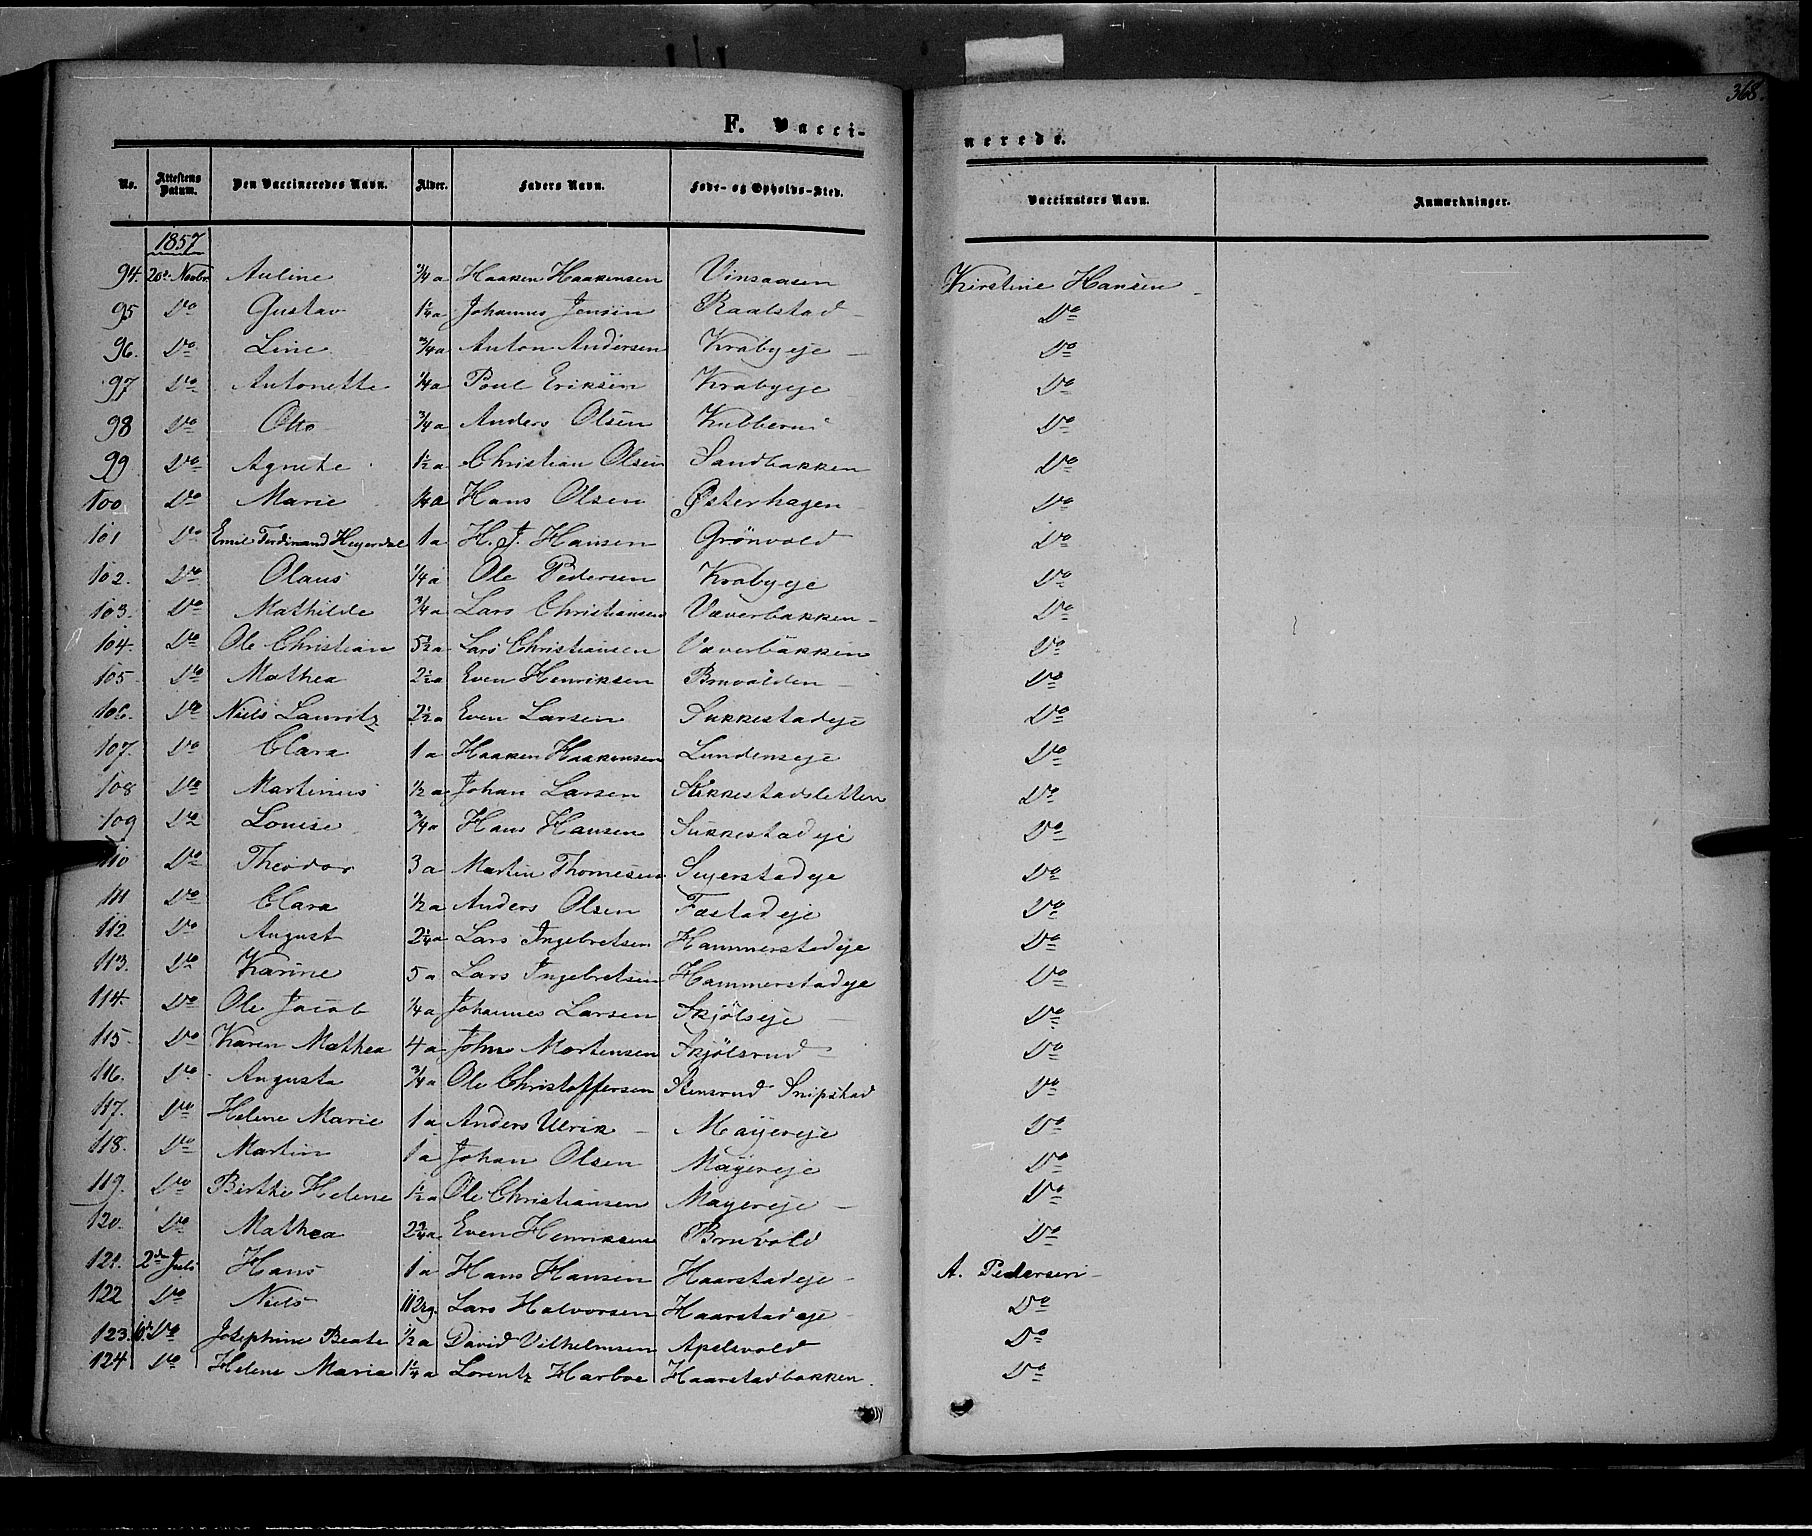 368.
F. Vacci-
nerede.
No. Attestens Datum. Den Vaccineredes Navn. Alder. Faders Navn. Føde- og Opholds-Sted. Vaccinators Navn. Anmærkninger.
1857
94. 20de Novbr. Auline 3/4 a Haaken Haakensen Vinsaasen Kirstine Hansen
95 Do Gustav Johannes Jensen Raalstad Do
96. Do Line 3/4 a Anton Andersen Krabyeje Do
97 Do Antonette 1/4 a Poul Eriksen Krabyeje Do
98 Do Otto 3/4 a Anders Olsen Do
99 Do Agnete 1 1/2 a Christian Olsen Sandbakken Do
100 Do Marie 1/4 a Hans Olsen Østerhagen Do
101 Do Emil Ferdinand Heyerdal 1 a H. J. Hansen Grönvold Do
102. Do Olaus 1/4 a Ole Pedersen Krabyeje Do
103. Do Mathilde 3/4 a Lars Christiansen Væverbakken Do
104. Do Ole Christian 5 1/2 a Lars Christiansen Væverbakken Do
105 Do Mathea 2 1/2 a Even Henriksen Bruvolden Do
106. Do Niels Lauritz 2 1/2 a Even Larsen Sukkestadeje Do
107. Do Clara 1 a Haaken Haakensen Lundenseje Do
108 Do Martinus 1/2 a Johan Larsen Sukkestadsletten Do
109 Do Louise 3/4 a Hans Hansen Sukkestadeje Do
110 Do Theodor 3 a Martin Thomesen Seyerstadeje Do
111 Do Clara 1/2 a Anders Olsen Fæstadeje Do
112 Do August 2 1/4 a Lars Ingebretsen Hammerstadeje Do
113. Do Karine 5 a Lars Ingebretsen Hammerstadeje Do
114. Do Ole Jacob 1/4 a Johannes Larsen Skjölseje Do
115 Do Karen Mathea 4 a John Mortensen Skjölsrud Do
116. Do Augusta 3/4 a Ole Christoffersen Stensrud Snipstad Do
117. Do Helene Marie 1 a Anders Ulrik Mayereje Do
118. Do Martin 1 a Johan Olsen Mayereje Do
119. Do Birthe Helene 1 1/2 a Ole Christiansen Mayereje Do
120. Do Mathea 2 3/4 a Even Henriksen Bruvold Do
121. 2den Juli Hans 1 a Hans Hansen Haarstadeje A. Pedersen
122 Do Niels Lars Halvorsen Haarstadeje Do
123. Do Josephine Beate 1/2 a David Vilhelmsen Apelsvold Do
124 Do Helene Maria 1 1/4 a Lorentz Harboe Haarstadbakken. Do